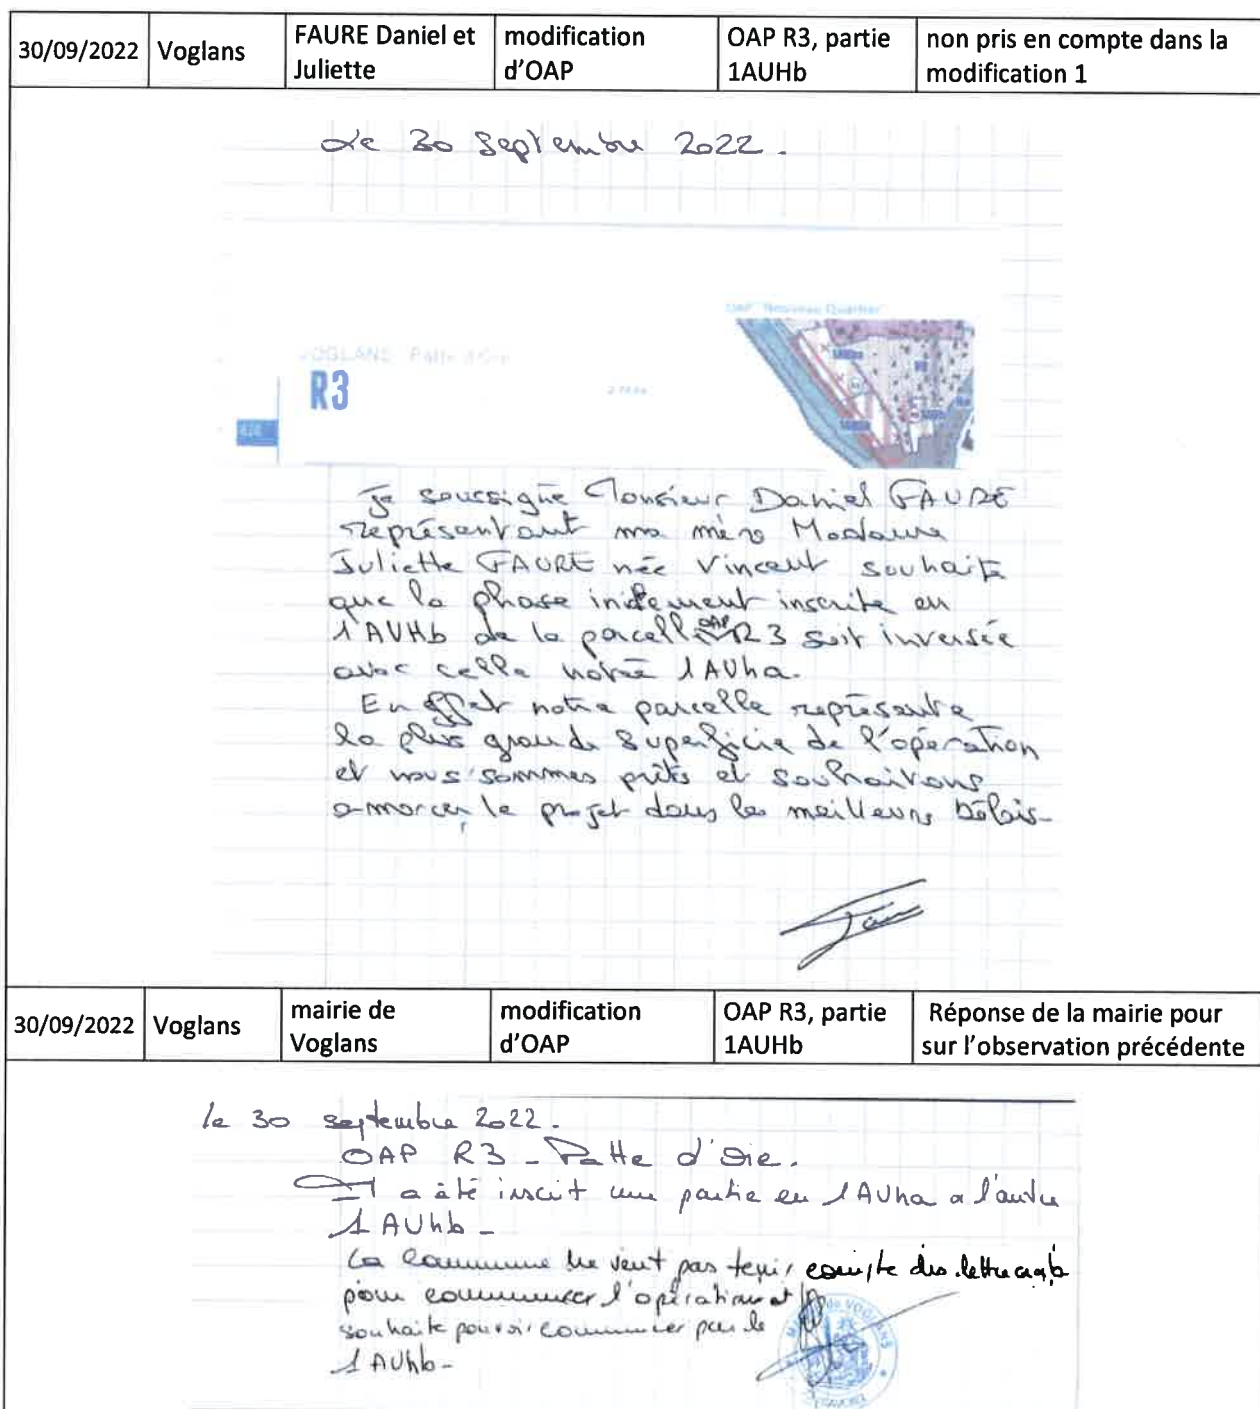 30/09/2022 Voglans FAURE Daniel et Juliette modification d'OAP OAP R3, partie 1AUHb non pris en compte dans la modification 1
Le 30 Septembre 2022.
OAP "Nouveau Quartier"
VOGLANS Patte d'Oie
R3
Je soussigné Monsieur Daniel FAURE
représentant ma mère Madame
Juliette FAURE née Vincent souhaite
que la phase inscrite en
1AUHb de la parcelle OAP R3 soit inversée
avec celle notée 1AUha.
En effet notre parcelle représente
la plus grande superficie de l'opération
et nous sommes prêts et souhaitons
amorcer le projet dans les meilleurs délais-
30/09/2022 Voglans mairie de Voglans modification d'OAP OAP R3, partie 1AUHb Réponse de la mairie pour sur l'observation précédente
le 30 septembre 2022.
OAP R3 - Patte d'Oie.
Il a été inscrit une partie en 1AUha a l'autre
1AUhb-
La Commune ne veut pas tenir compte des lettre a et b
pour commencer l'opération et
souhaite pouvoir commencer par le
1AUhb-
MAIRIE de VOGLANS